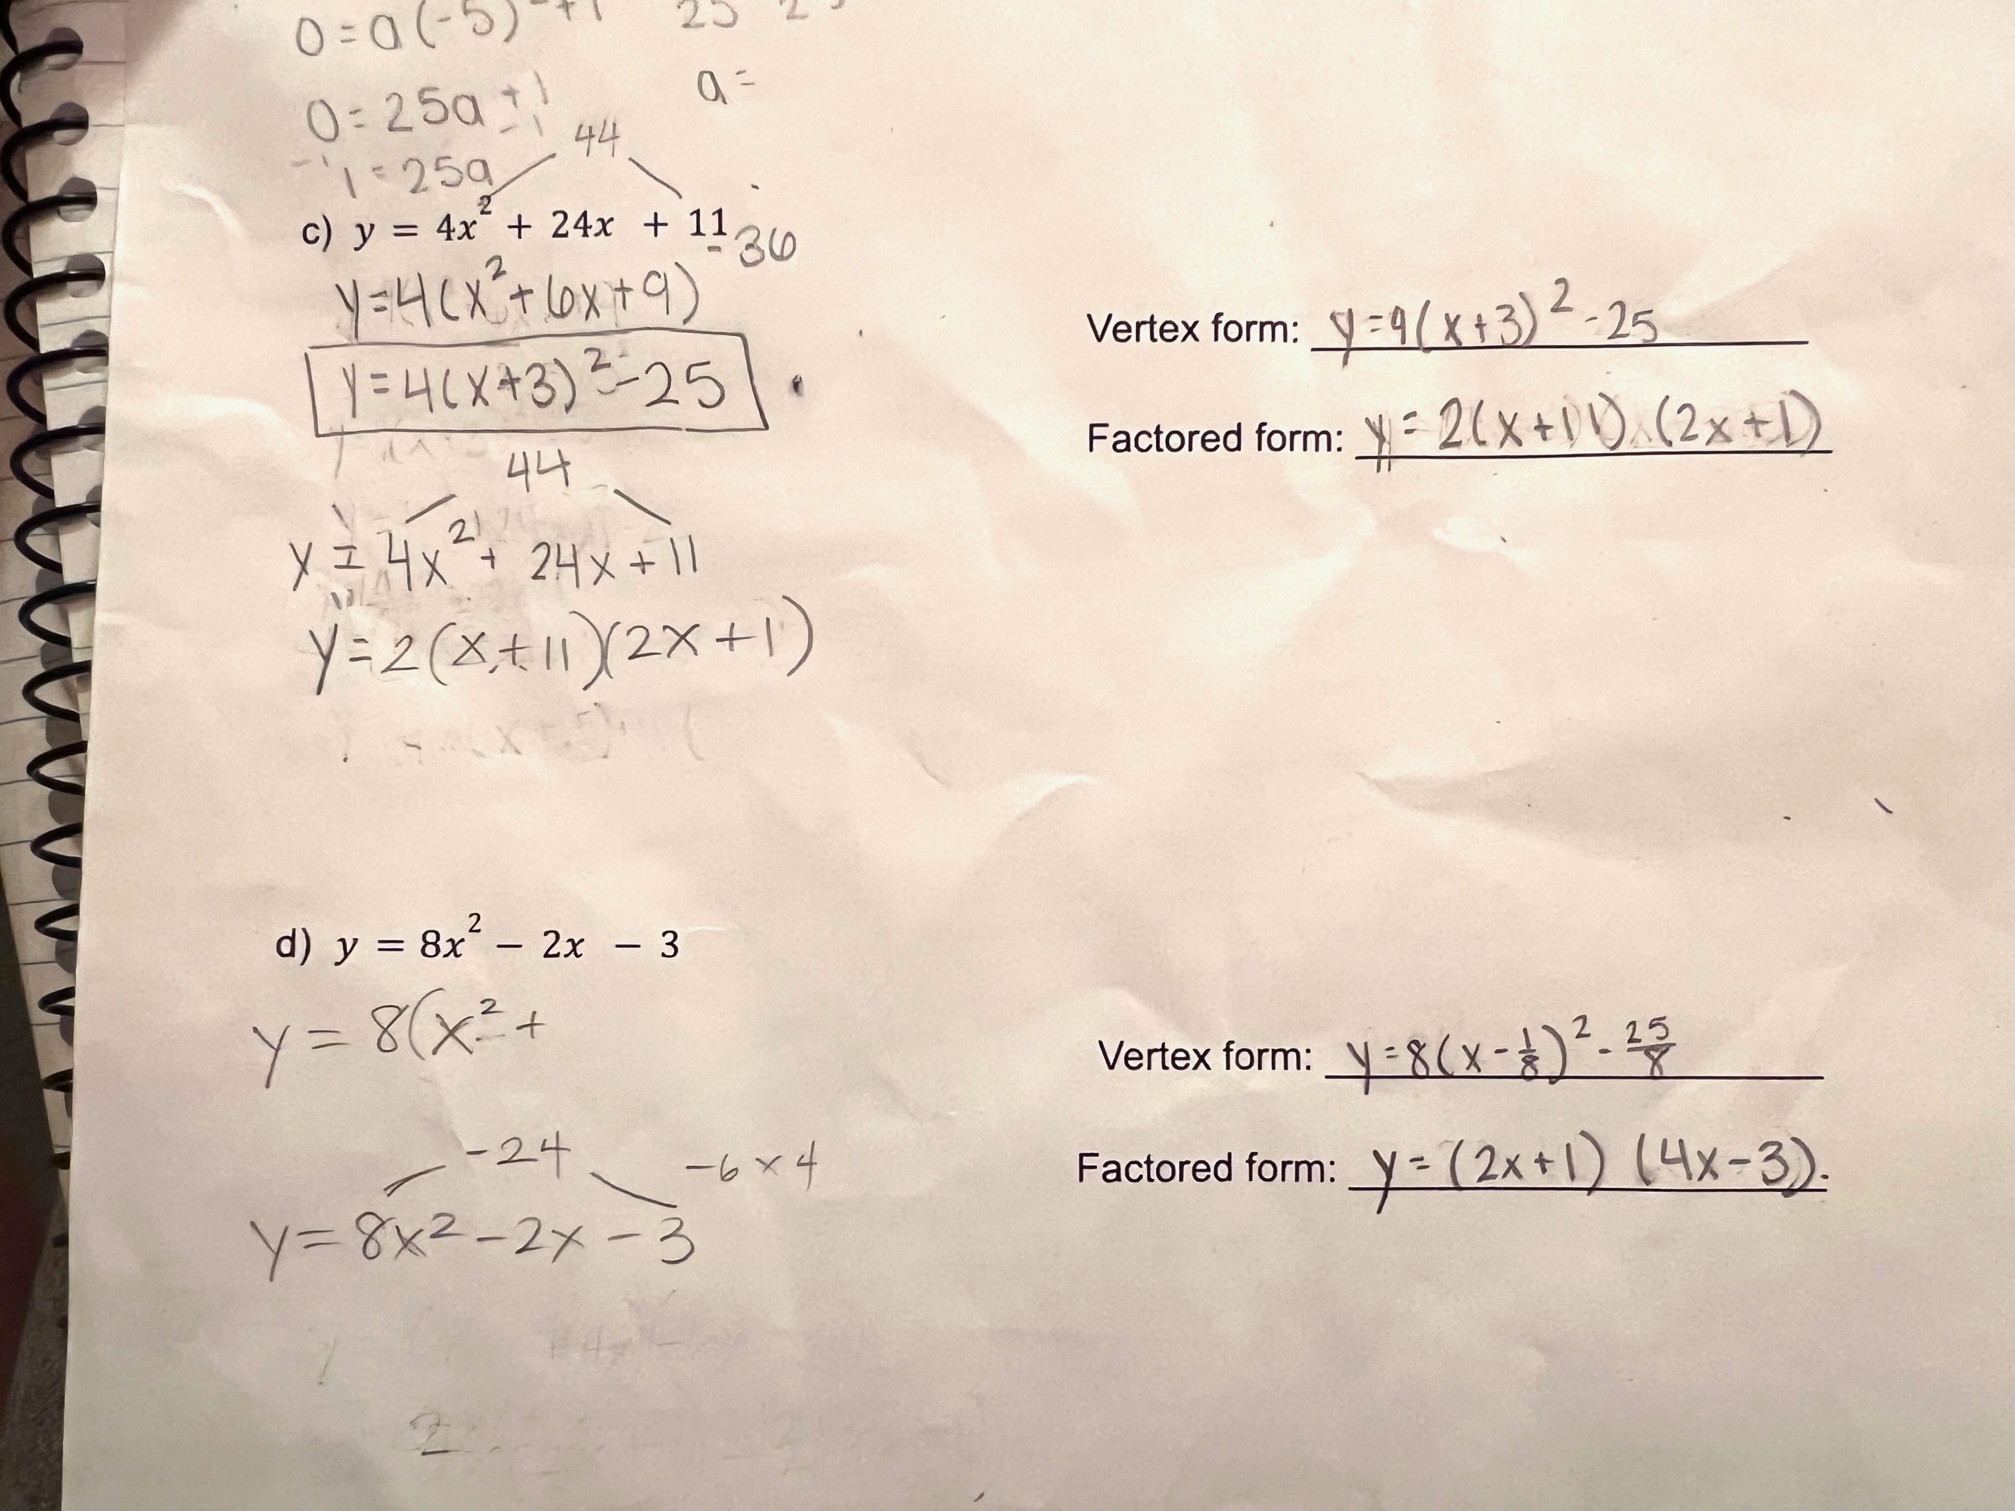 0 = a(-5)² + 1
25 25
0 = 25a + 1
- 1
a =
-1 = 25a
44
c) y = 4x² + 24x + 11 - 36
y = 4(x² + 6x + 9)
y = 4(x+3)² - 25
Vertex form: y = 9(x+3)² - 25
Factored form: y = 2(x+11) (2x+1)
44
y = 4x² + 24x + 11
y = 2(x+11)(2x+1)
d) y = 8x² − 2x − 3
y = 8(x² +
Vertex form: y = 8(x - 1/8)² - 25/8
-24 -6 x 4
Factored form: y = (2x+1) (4x-3).
y = 8x² - 2x - 3
2